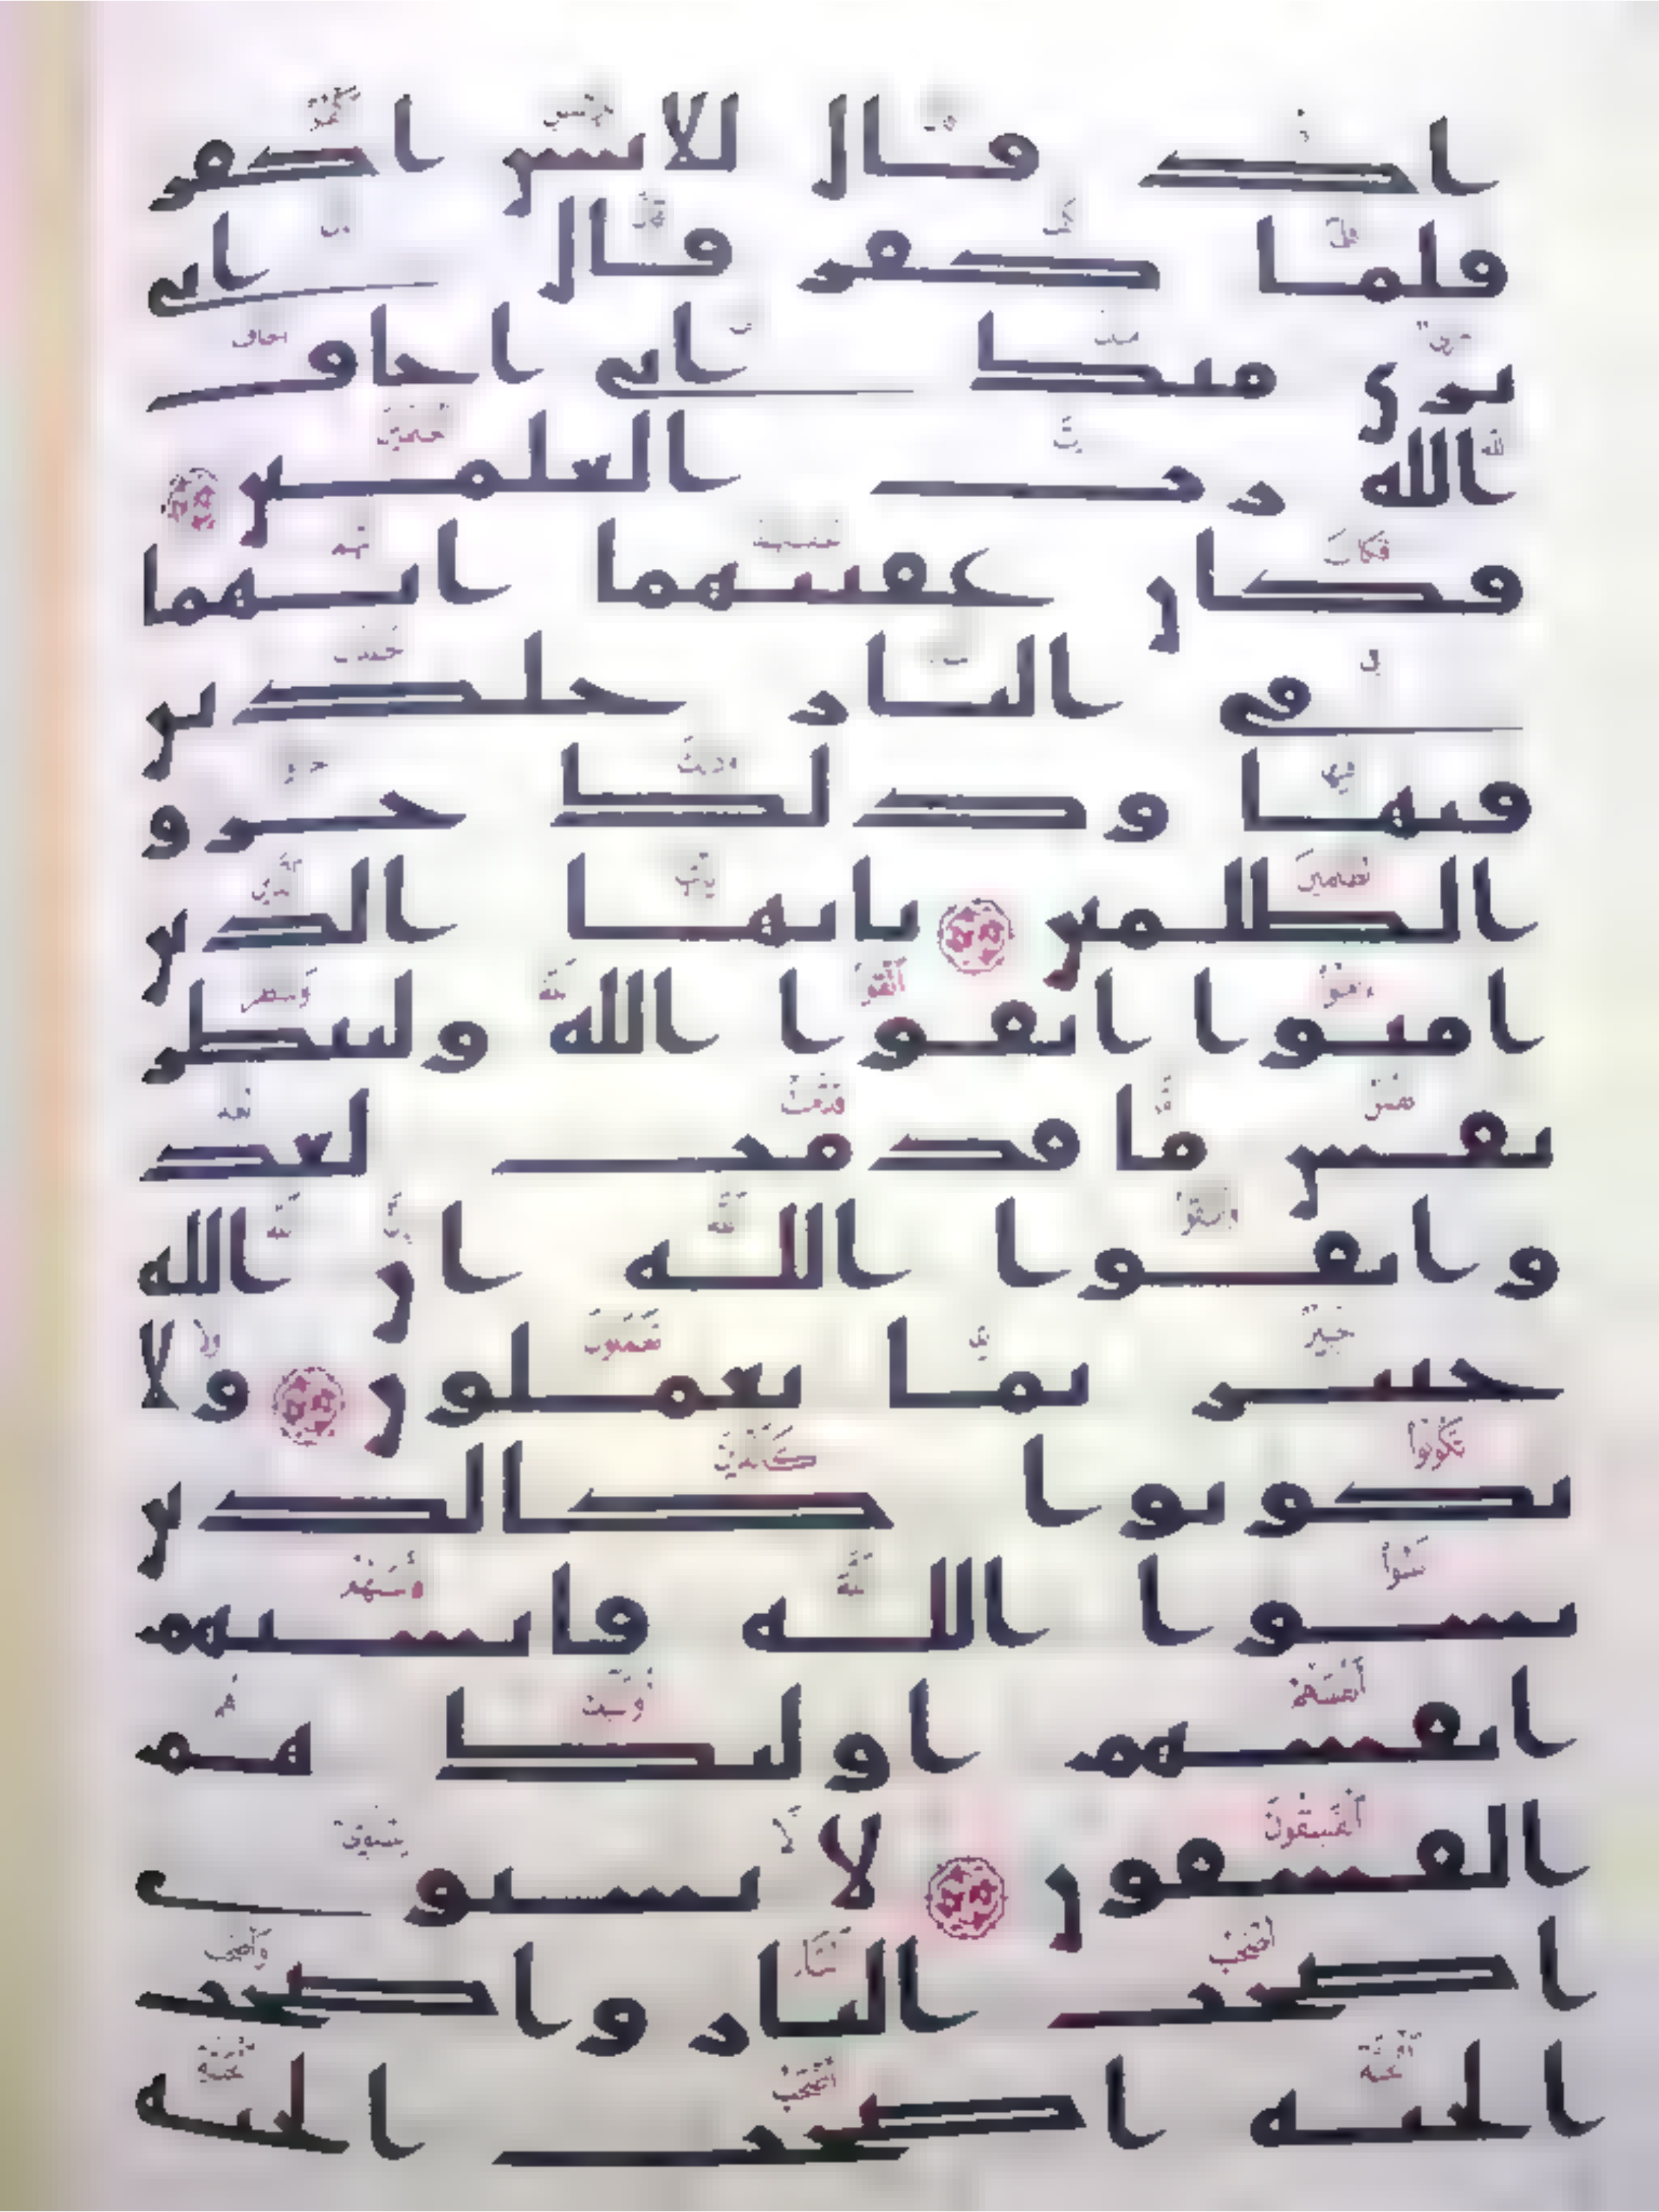 اذ قال للانسن اكفر
فلما كفر قال انى
برى منك انى اخاف
الله رب العلمين
فكان عقبتهما انهما
فى النار خلدين
فيها وذلك جزو
الظلمين يايها الذين
امنوا اتقوا الله ولتنظر
نفس ما قدمت لغد
واتقوا الله ان الله
خبير بما تعملون ولا
تكونوا كالذين
نسوا الله فانسيهم
انفسهم اوليك هم
الفسقون لا يستوى
اصحب النار واصحب
الجنة اصحب الجنة